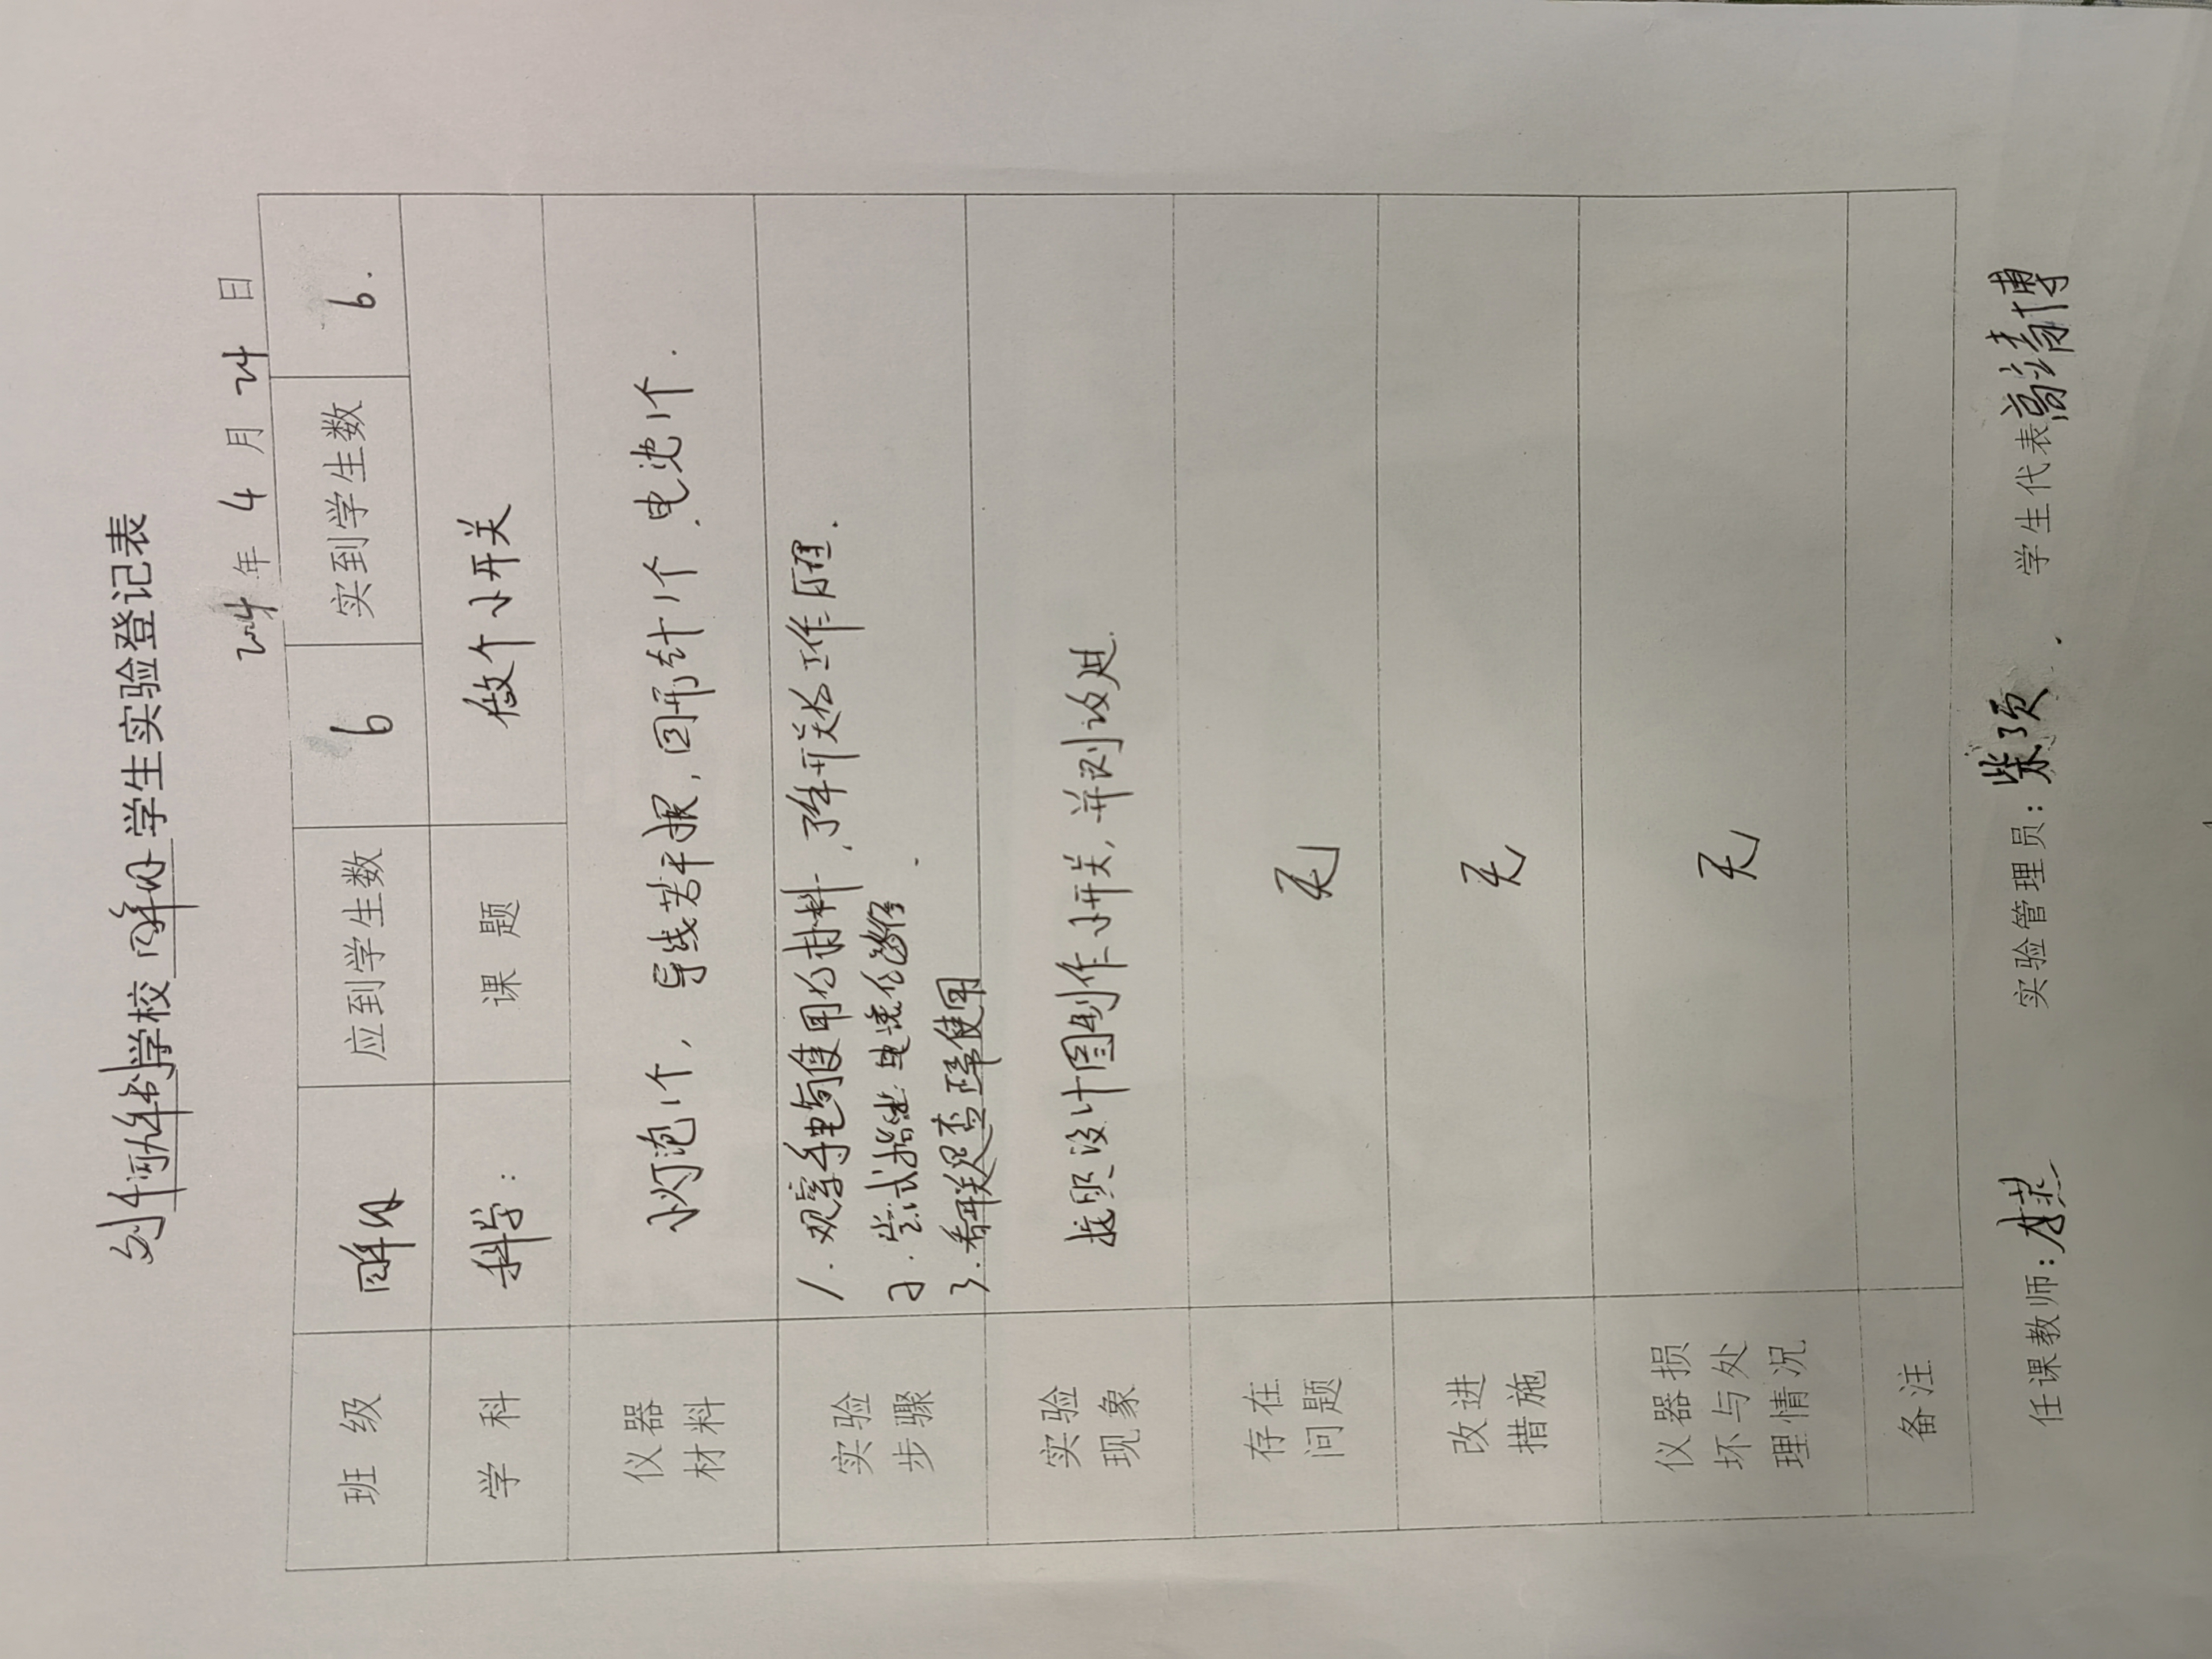 学校 四年级 学生实验登记表
2024 年 4 月 24 日
班级 四年级 应到学生数 6 实到学生数 6.
学科 科学: 课题 做个小开关
仪器材料 小灯泡1个, 导线若干根, 回形针1个、电池1个.
实验步骤
1. 观察手电筒使用的材料,了解开关的工作原理.
2. 尝试控制电流的通断.
3. 看开关是否正常使用
实验现象 按照设计图制作小开关, 并测试过.
存在问题 无
改进措施 无
仪器损坏与处理情况 无
备注
任课教师: 实验管理员: 柴项 学生代表 高靖博